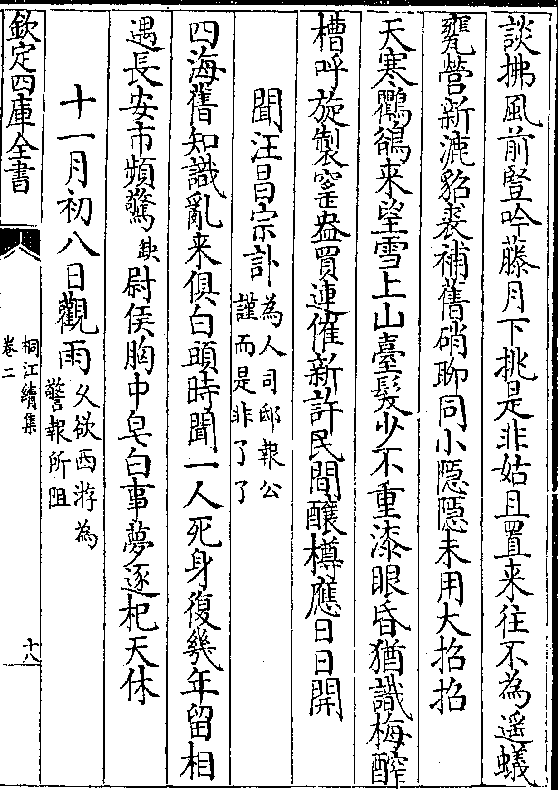 談拂風前豎吟藤月下挑是非姑且置来往不為遥蟻
甕營新漉貂裘補舊硝聊同小隠隠未用大招招
天寒鸜鵒来望雪上山臺髮少不重漆眼昏猶識梅醡
槽呼旋製窰盎買連催新許民間釀樽應日日開
聞汪昌宗訃為人司邸報公謹而是非了了
四海舊知識亂来俱白頭時聞一人死身復幾年留相
遇長安市頻驚缺尉侯胸中皂白事夢逐杞天休
十一月初八日觀雨久欲西游為警報所阻
欽定四庫全書
桐江續集
卷二
十八